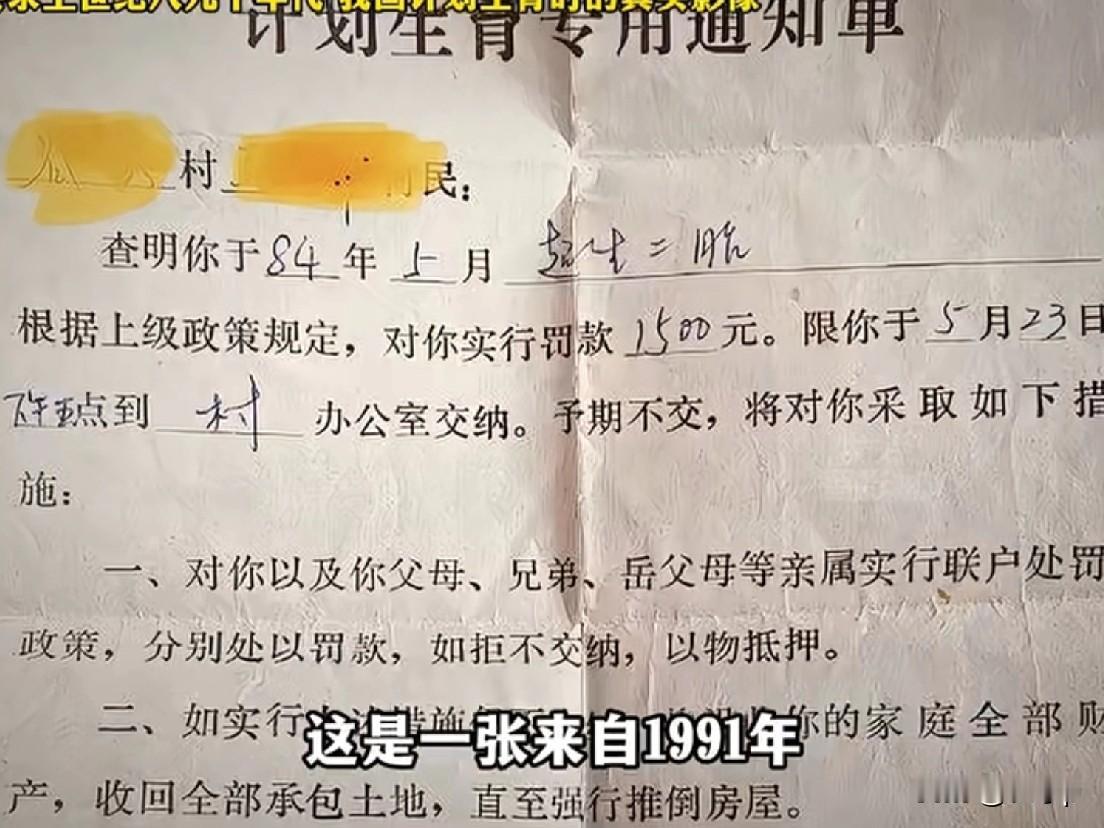 上世纪八九十年代 我国计划生育时的真实影像
计划生育专用通知单
村 民:
查明你于84年5月超生二胎
根据上级政策规定，对你实行罚款1500元。限你于5月23日
下午五点到 村 办公室交纳。予期不交，将对你采取如下措
施:
一、对你以及你父母、兄弟、岳父母等亲属实行联户处罚
政策，分别处以罚款，如拒不交纳，以物抵押。
二、如实行 措施 你的家庭全部财
这是一张来自1991年
产，收回全部承包土地，直至强行推倒房屋。